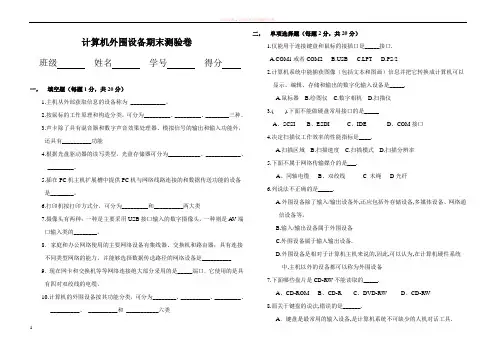 计算机外围设备期末测验卷
班级 姓名 学号 得分
一、 填空题(每题1分,共20分)
1.主机从外部获取信息的设备称为 ____________.
2.按鼠标的工作原理和构造分类,可分为________、________、________三种.
3.声卡除了具有混音器和数字声音效果处理器、模拟信号的输出和输入功能外,
还具有________功能
4.根据光盘驱动器的读写类型,光盘存储器可分为__________、__________、
________。
5.插在PC机主机扩展槽中提供PC机与网络线路连接的和数据传送功能的设备
是_______。
6.打印机按打印方式分,可分为________和________两大类
7.摄像头有两种:一种是主要采用USB接口输入的数字摄像头,一种则是AV端
口输入类的_______。
8. 家庭和办公网络使用的主要网络设备有集线器、交换机和路由器。具有连接
不同类型网络的能力、并能够选择数据传送路径的网络设备是________
9. 现在网卡和交换机等等网络连接绝大部分采用的是_____端口。它使用的是具
有四对双绞线的电缆。
10.计算机的外围设备按其功能分类,可分为_______、_________、________、
_________、_________和 __________六类
二、 单项选择题(每题2分,共20分)
1.仅能用于连接键盘和鼠标的接插口是_____接口.
A.COM1或者COM2 B.USB C.LPT D.PS/2
2.计算机系统中能捕获图像(包括文本和图画)信息并把它转换成计算机可以
显示、编辑、存储和输出的数字化输入设备是_____。
A.鼠标器 B.绘图仪 C.数字相机 D.扫描仪
3.( ).下面不能做硬盘常用接口的是_____
A、SCSI B、EIDE C、IDE D、COM接口
4.决定扫描仪工作效率的性能指标是____.
A.扫描区域 B.扫描速度 C.扫描模式 D.扫描分辨率
5.下面不属于网络传输媒介的是___.
A、同轴电缆 B、双绞线 C 木绳 D光纤
6.列说法不正确的是_____。
A.外围设备除了输入/输出设备外,还应包括外存储设备,多媒体设备、网络通
信设备等。
B.输入/输出设备属于外围设备
C.外围设备属于输入输出设备.
D.外围设备是相对于计算机主机来说的,因此,可以认为,在计算机硬件系统
中,主机以外的设备都可以称为外围设备
7.下面哪些盘片是CD-RW不能读取的_____。
A、CD-ROM B、CD-R C、DVD-RW D、CD-RW
8.面关于键盘的说法,错误的是______。
A、键盘是最常用的输入设备,是计算机系统不可缺少的人机对话工具.